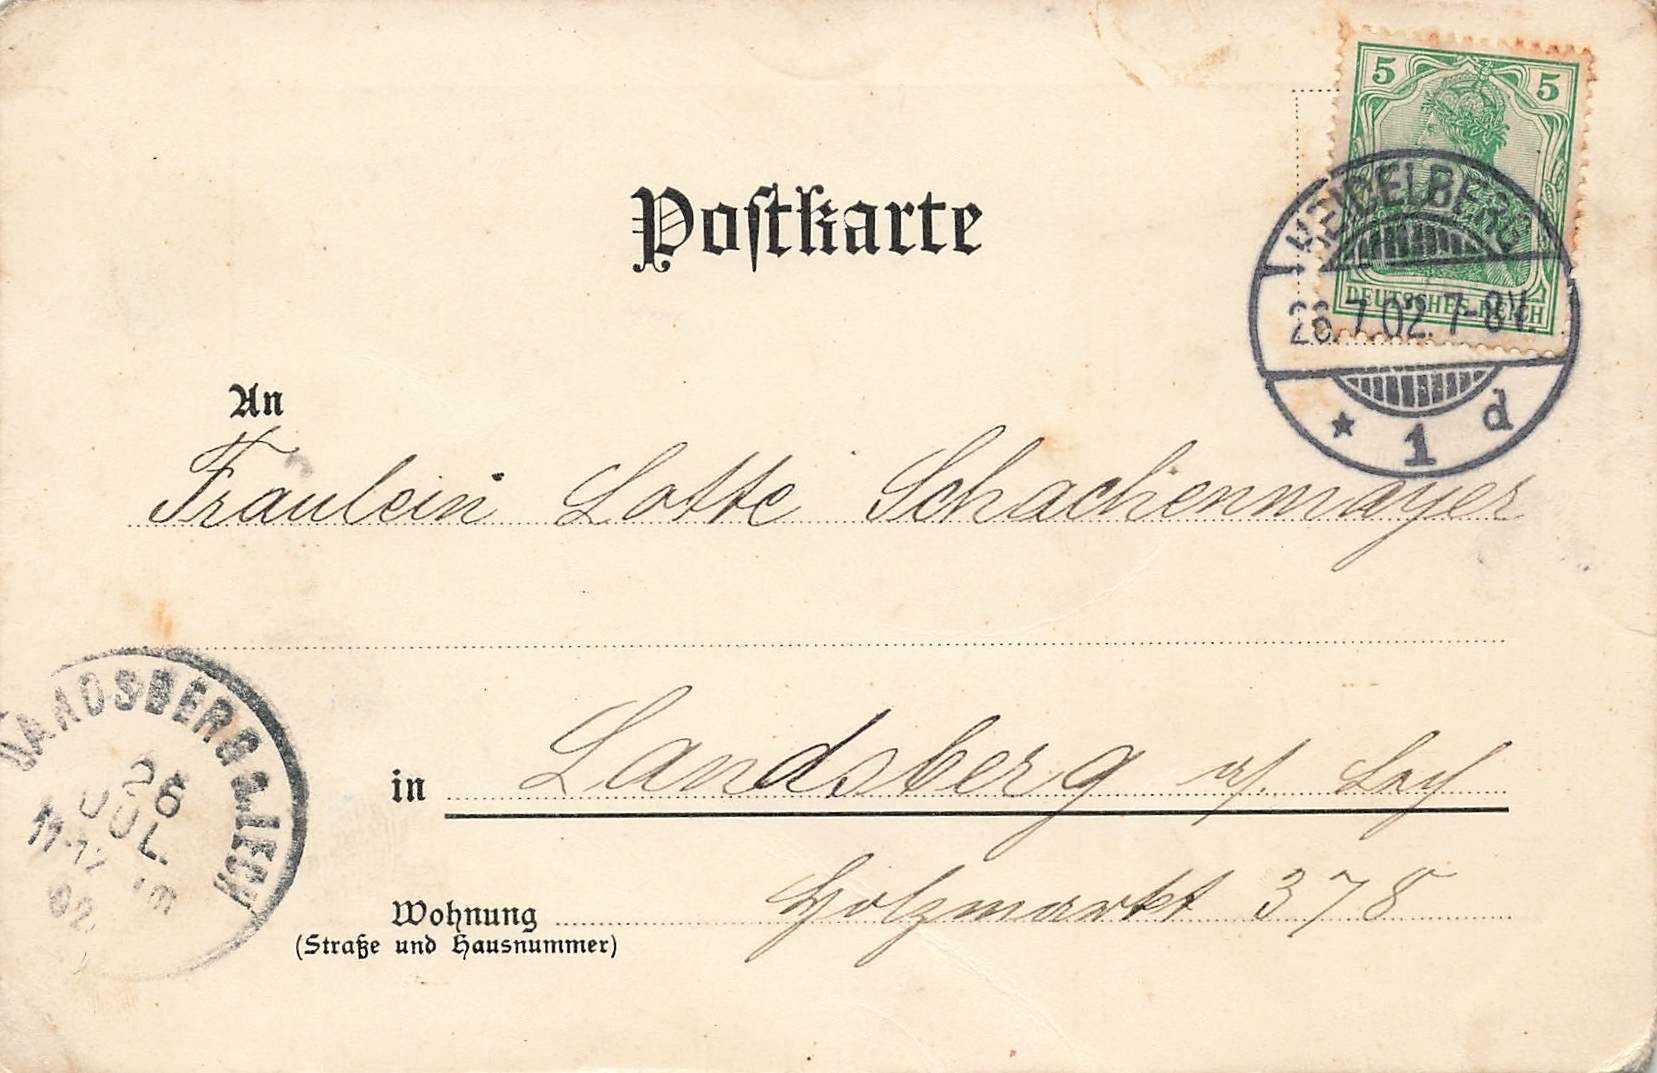 5 5
DEUTSCHES REICH
HEIDELBERG
26.7.02.7-8V.
* 1 d
Postkarte
An
Fräulein Lotte Schachenmayer
LANDSBERG a. LECH
26
JUL.
11-12 Vm
02
in Landsberg a/. Lech
Wohnung Holzmarkt 378
(Straße und Hausnummer)